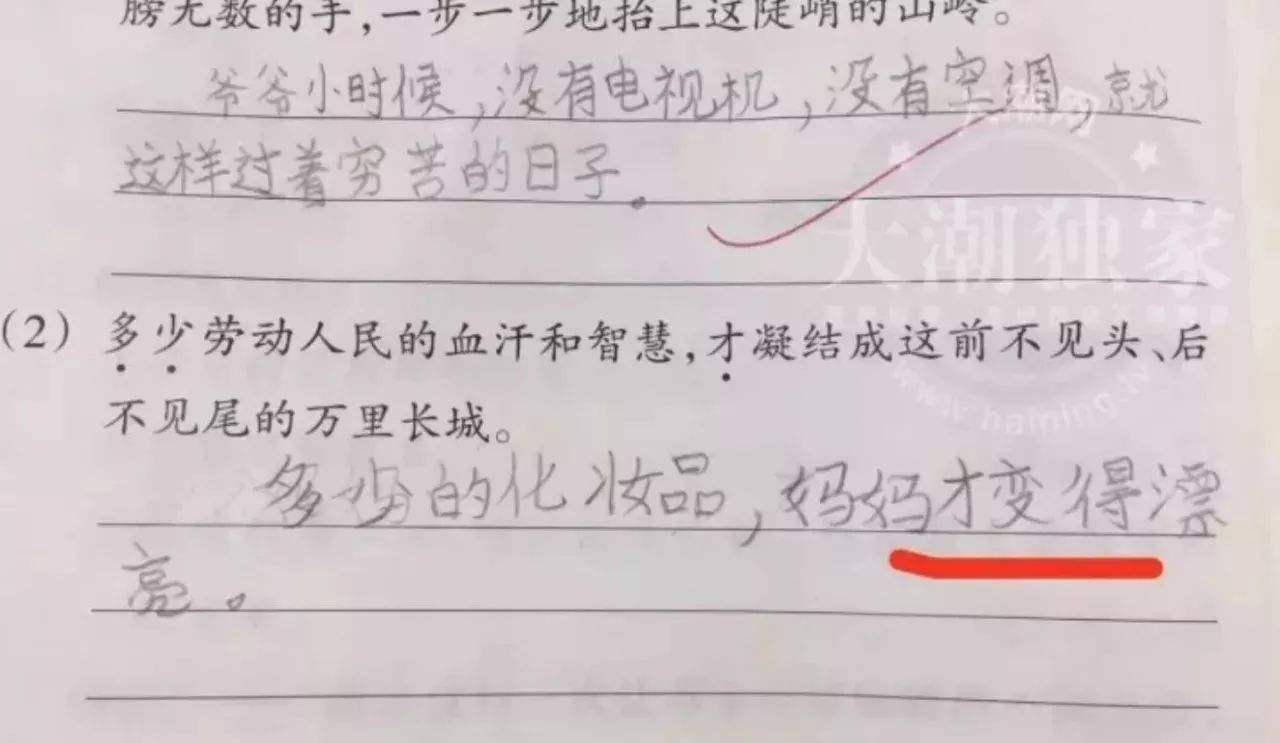 膀无数的手,一步一步地抬上这陡峭的山岭。
爷爷小时候,没有电视机,没有空调,就
这样过着穷苦的日子。
大潮独家
(2) 多少劳动人民的血汗和智慧,才凝结成这前不见头、后
不见尾的万里长城。
多少的化妆品,妈妈才变得漂
亮。